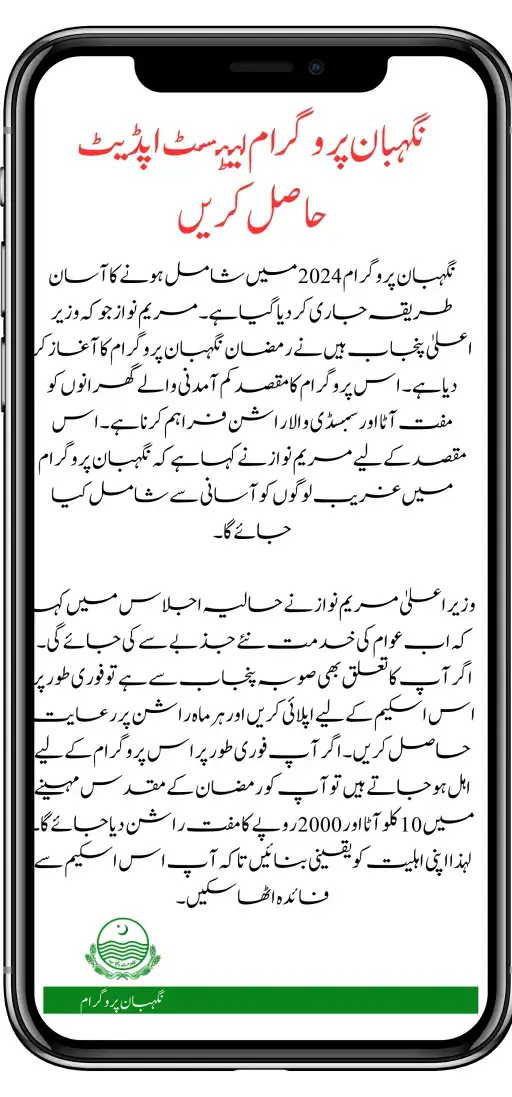 نگہبان پروگرام لیٹسٹ اپڈیٹ
حاصل کریں
نگہبان پروگرام 2024 میں شامل ہونے کا آسان
طریقہ جاری کر دیا گیا ہے۔ مریم نواز جو کہ وزیر
اعلیٰ پنجاب ہیں نے رمضان نگہبان پروگرام کا آغاز کر
دیا ہے۔ اس پروگرام کا مقصد کم آمدنی والے گھرانوں کو
مفت آٹا اور سبسڈی والا راشن فراہم کرنا ہے۔ اس
مقصد کے لیے مریم نواز نے کہا ہے کہ نگہبان پروگرام
میں غریب لوگوں کو آسانی سے شامل کیا
جائے گا۔
وزیر اعلیٰ مریم نواز نے حالیہ اجلاس میں کہا
کہ اب عوام کی خدمت نئے جذبے سے کی جائے گی۔
اگر آپ کا تعلق بھی صوبہ پنجاب سے ہے تو فوری طور پر
اس اسکیم کے لیے اپلائی کریں اور ہر ماہ راشن پر رعایت
حاصل کریں۔ اگر آپ فوری طور پر اس پروگرام کے لیے
اہل ہو جاتے ہیں تو آپ کو رمضان کے مقدس مہینے
میں 10 کلو آٹا اور 2000 روپے کا مفت راشن دیا جائے گا۔
لہذا اپنی اہلیت کو یقینی بنائیں تاکہ آپ اس اسکیم سے
فائدہ اٹھا سکیں۔
نگہبان پروگرام